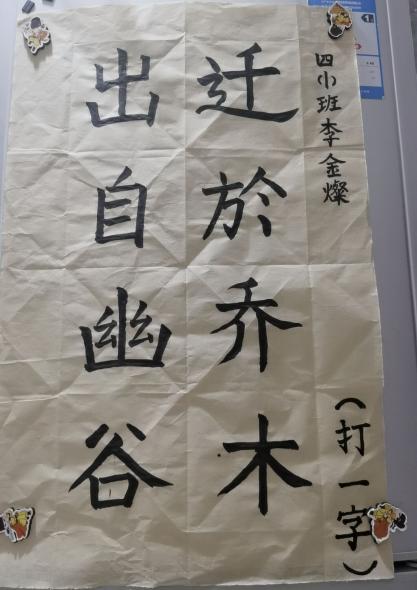 出自幽谷
迁於乔木
四小班李金燦
（打一字）